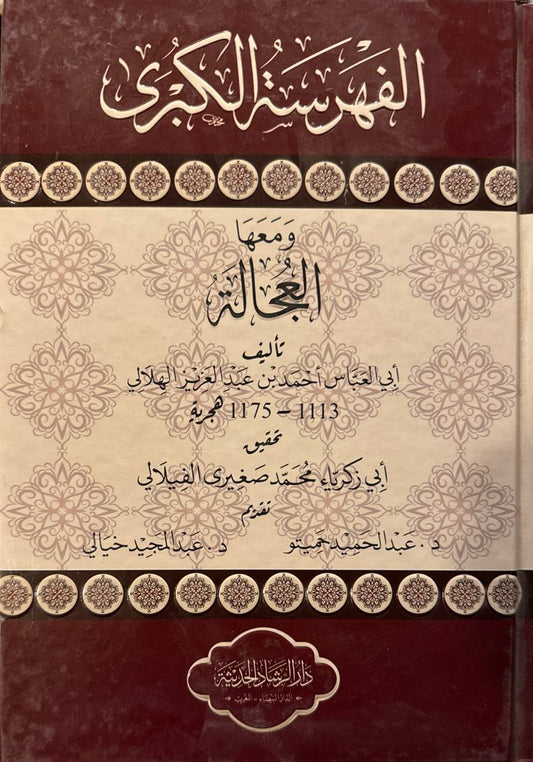 الفَهْرَسَةُ الكُبْرَى
وَمَعَهَا
العُجَالَةُ
تأليف
أبي العبَّاس أحْمَد بْن عَبْد العَزِيز الهِلَالِي
1113 – 1175 هجرية
تحقيق
أبي زكرياء محمَّد صَغِيري الفِيلَالي
تقديم
د. عبد الحميد حميتو د. عبد المجيد خيالي
دار الرشاد الحديثة
الدار البيضاء - المغرب